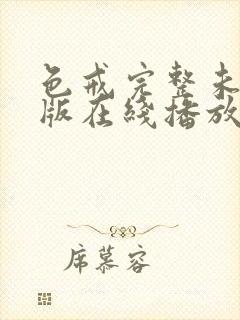 色戒完整未
版在线播放
席慕容